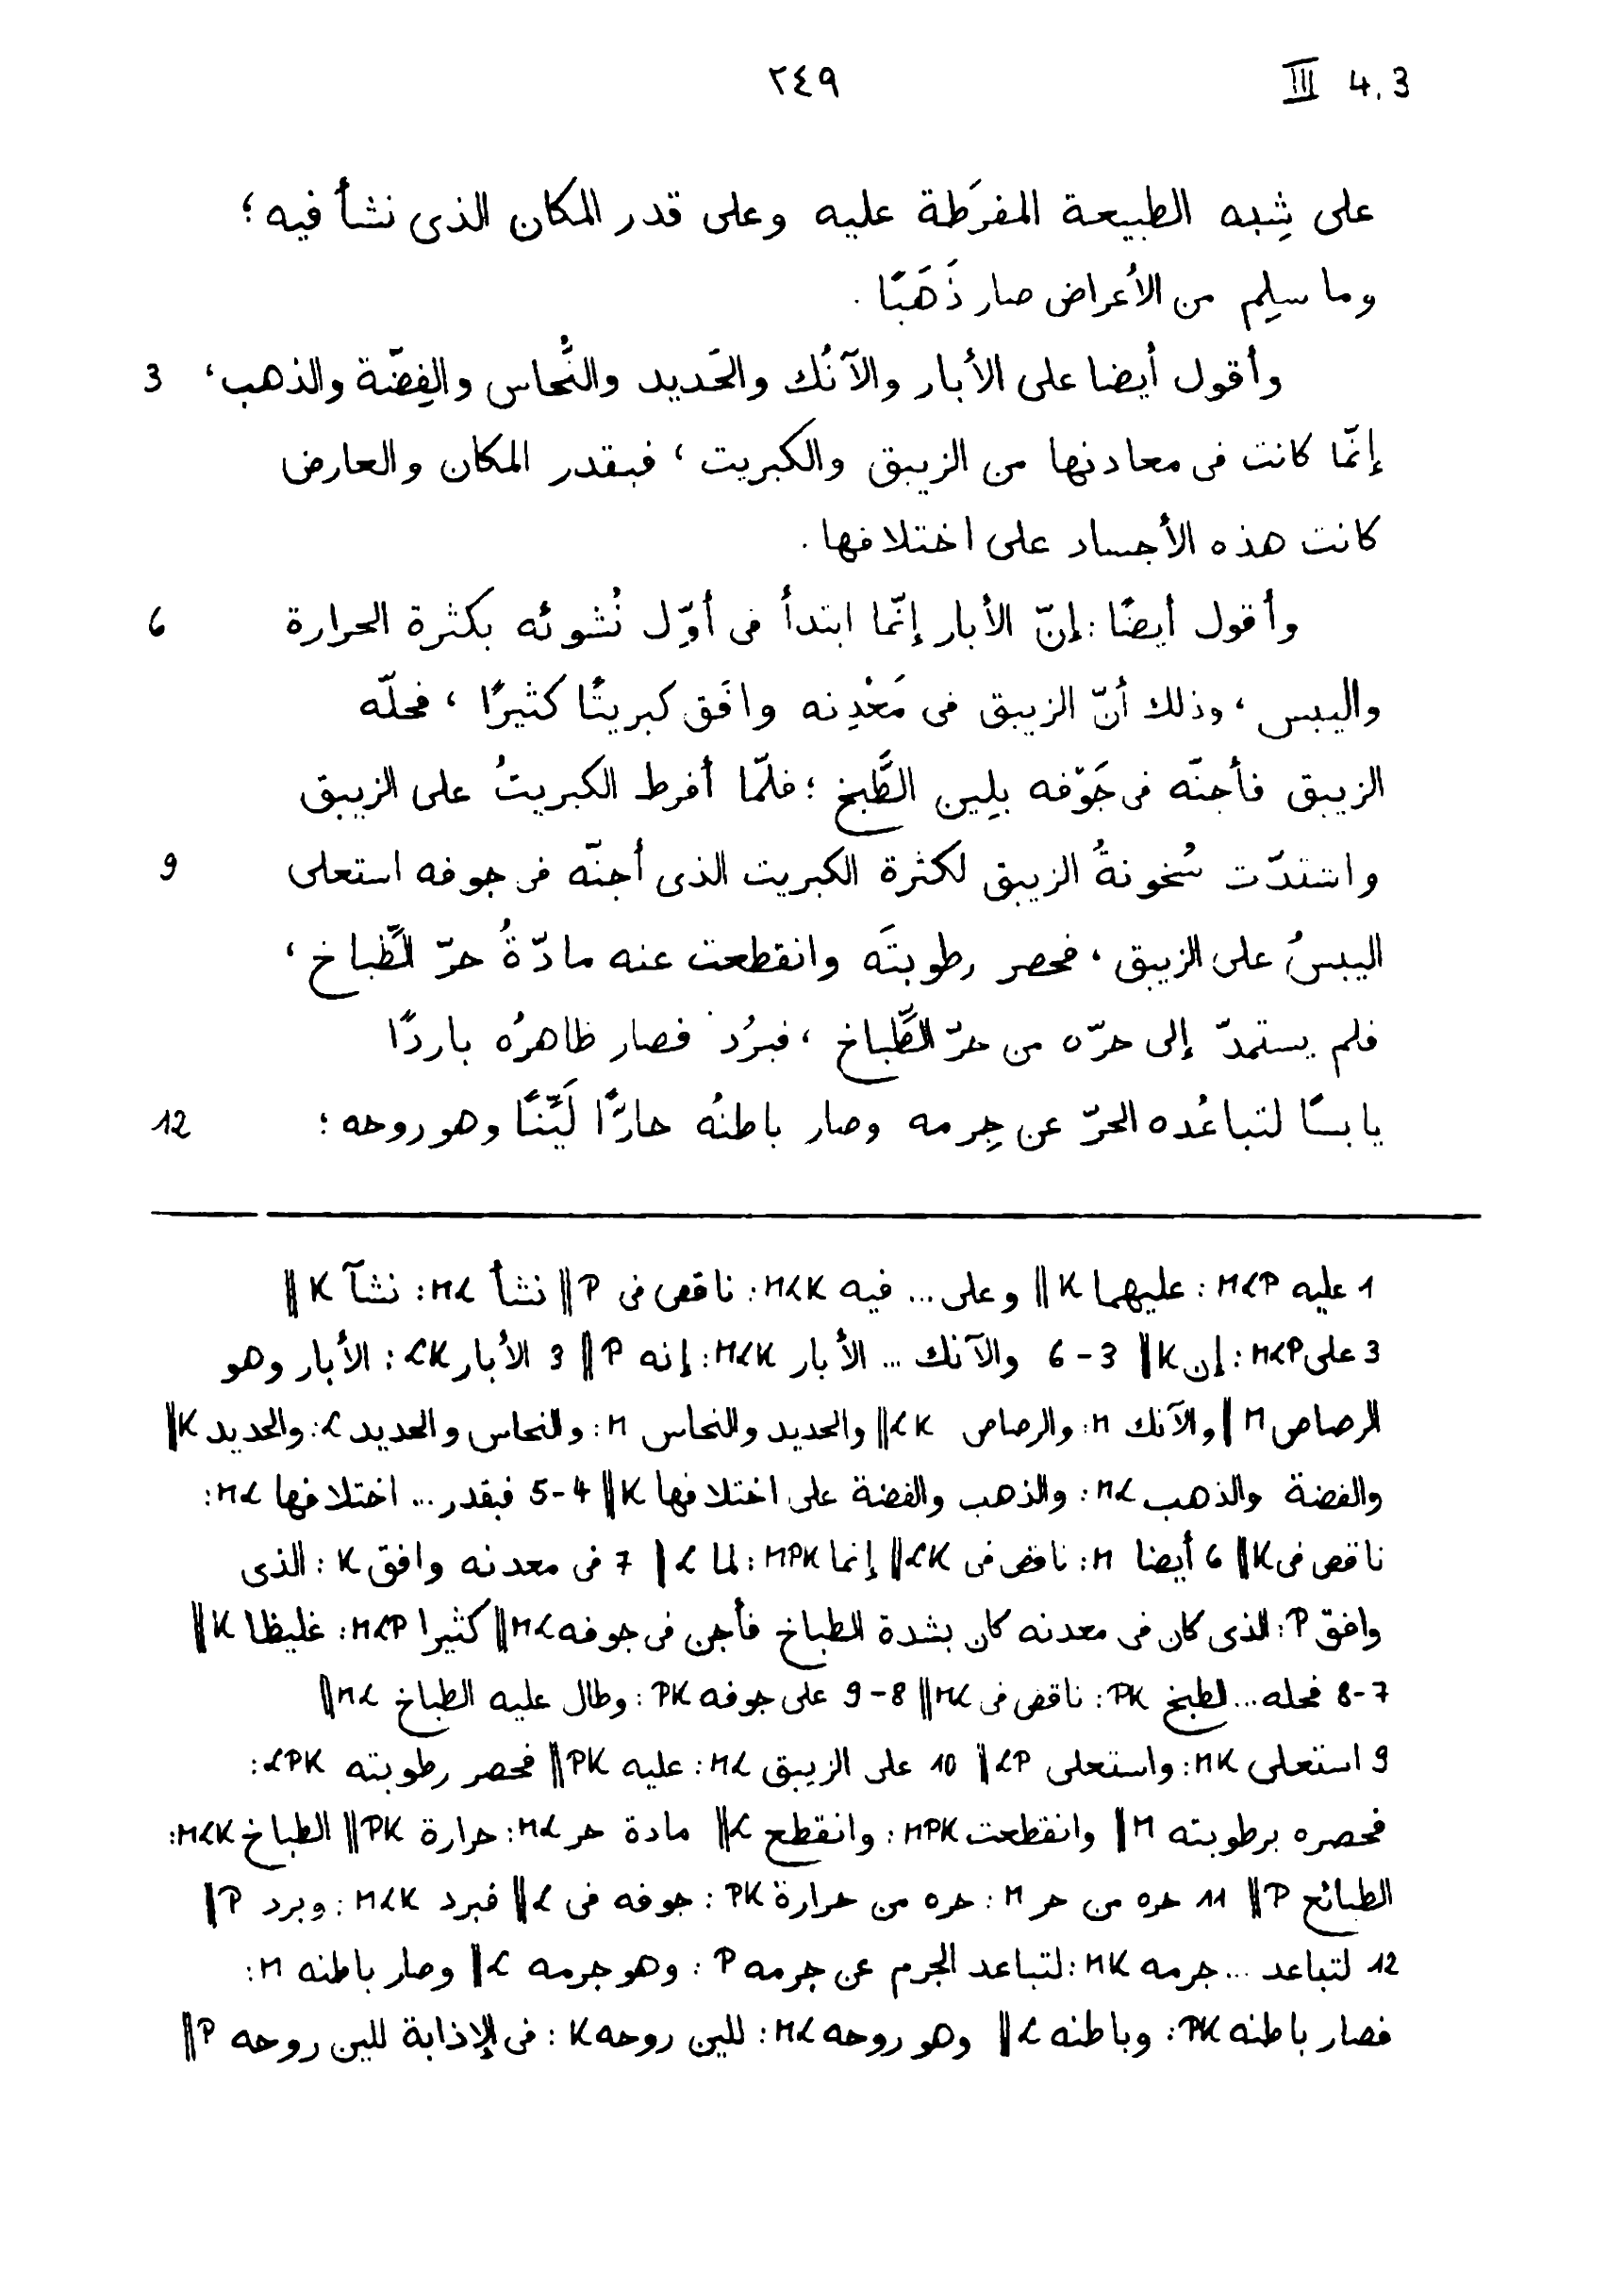 ٢٤٩ III 4.3
على شِبه الطبيعة المفرَطة عليه وعلى قدر المكان الذى نشأ فيه؛
وما سلِم من الأعراض صار ذَهَبًا.
3 وأقول أيضا على الأبار والآنُك والحَديد والنُّحاس والفِضّة والذهب،
إنّما كانت فى معادنها من الزيبق والكبريت، فبقدر المكان والعارض
كانت هذه الأجساد على اختلافها.
6 وأقول أيضًا: إنّ الأبار إنّما ابتدأ فى أوّل نُشوئه بكثرة الحرارة
واليبس، وذلك أنّ الزيبق فى مَعْدِنه وافَق كبريتًا كثيرًا، فحلّه
الزيبق فأجنّه فى جَوْفه بلِين الطَّبخ؛ فلمّا أفرط الكبريتُ على الزيبق
9 واشتدّت سُخونةُ الزيبق لكثرة الكبريت الذى أجنّه فى جوفه استعلى
اليبسُ على الزيبق، فحصر رطوبتَه وانقطعت عنه مادّةُ حرّ الطَّباخ،
فلم يستمدّ إلى حرّه من حرّ الطَّباخ، فبرُد فصار ظاهرُه باردًا
12 يابسًا لتباعُده الحرّ عن جِرمه وصار باطنُه حارًّا لَيِّنًا وهو روحه؛
1 عليه MLP: عليهما K ‖ وعلى... فيه MLK: ناقص فى P ‖ نشأ ML: نشآ K ‖
3 على MLP: إن K ‖ 3-6 والآنك ... الأبار MLK: إنه P ‖ 3 الأبار LK: الأبار وهو
الرصاص M ‖ والآنك M: والرصاص LK ‖ والحديد والنحاس M: والنحاس والحديد L: والحديد K ‖
والفضة والذهب ML: والذهب والفضة على اختلافها K ‖ 4-5 فبقدر... اختلافها ML:
ناقص فى K ‖ 6 أيضا M: ناقص فى LK ‖ إنما MPK: لما L ‖ 7 فى معدنه وافق K: الذى
وافق P: الذى كان فى معدنه كان بشدة الطباخ فأجن فى جوفه ML ‖ كثيرا MLP: غليظا K ‖
7-8 فحله... لطبخ PK: ناقص فى ML ‖ 8-9 على جوفه PK: وطال عليه الطباخ ML ‖
9 استعلى MK: واستعلى LP ‖ 10 على الزيبق ML: عليه PK ‖ فحصر رطوبته LPK:
فحصره برطوبته M ‖ وانقطعت MPK: وانقطع L ‖ مادة حر ML: حرارة PK ‖ الطباخ MLK:
الطبائع P ‖ 11 حره من حر M: حره من حرارة PK: جوفه فى L ‖ فبرد MLK: وبرد P ‖
12 لتباعد ... جرمه MK: لتباعد الجرم عن جرمه P: وهو جرمه L ‖ وصار باطنه M:
فصار باطنه PK: وباطنه L ‖ وهو روحه ML: للين روحه K: فى الإذابة للين روحه P ‖